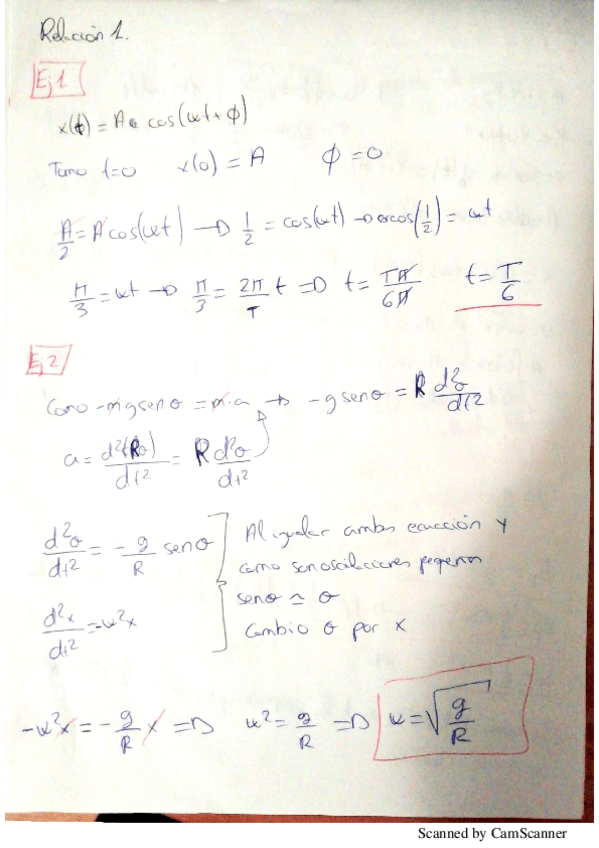 Relación 1.
Ej 1
x(t) = A cos(ωt + ϕ)
Tomo t=0 x(0) = A ϕ = 0
A/2 = A cos(ωt) → 1/2 = cos(ωt) → arcos(1/2) = ωt
π/3 = ωt → π/3 = 2π/T t ⇒ t = Tπ/6π t = T/6
Ej 2
Como -mg sen θ = m·a → -g sen θ = R d²θ/dt²
a = d²(Rθ)/dt² = R d²θ/dt²
d²θ/dt² = - g/R sen θ
d²x/dt² = ω²x
Al igualar ambas ecuacción y
como son oscilaciones pequeñas
sen θ ≃ θ
Cambio θ por x
-ω²x = - g/R x ⇒ ω² = g/R ⇒ ω = √(g/R)
Scanned by CamScanner